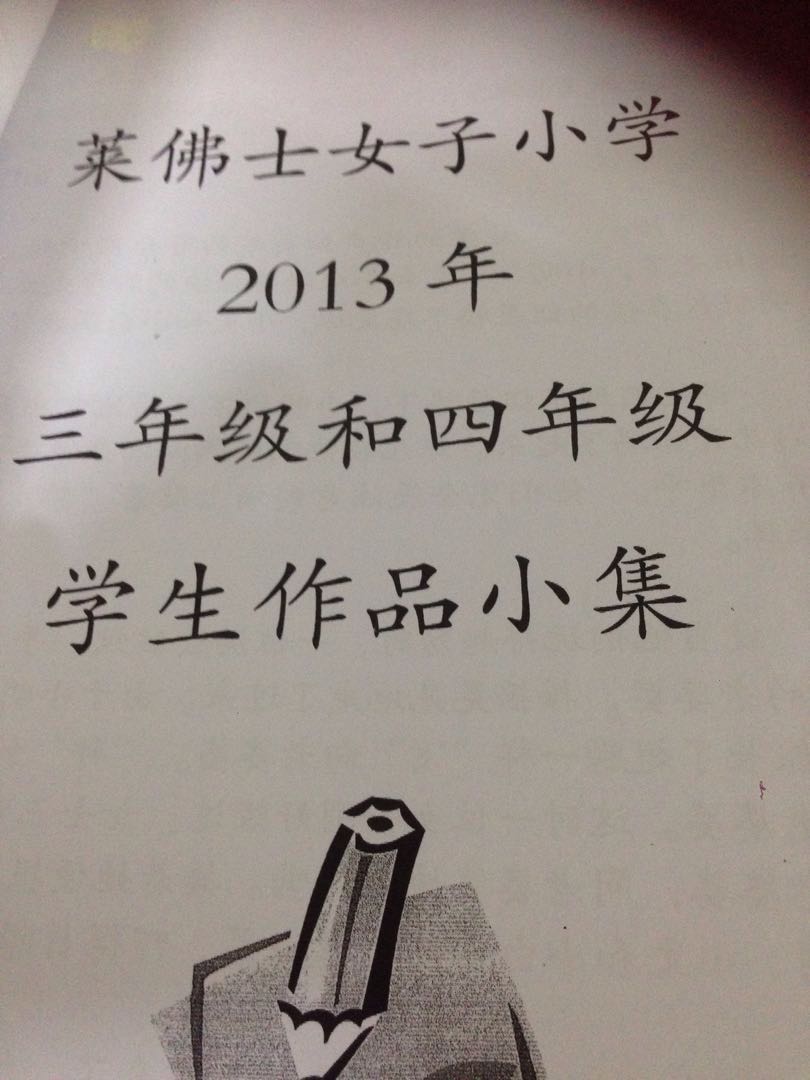 莱佛士女子小学
2013 年
三年级和四年级
学生作品小集